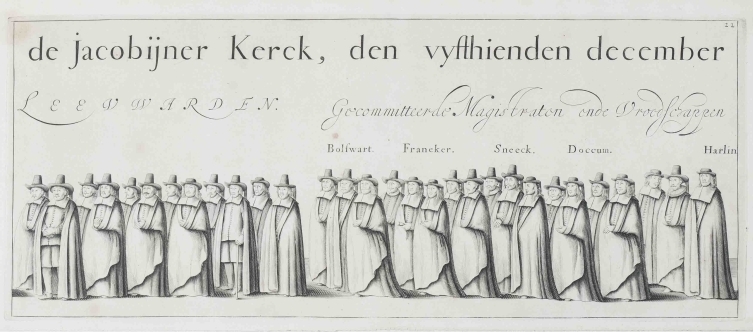 22
de Jacobijner Kerck, den vyfthienden december
LEEUWARDEN. Gecommitteerde Magistraten ende Vroedschappen
Bolswart. Franeker. Sneeck. Doccum. Harlin